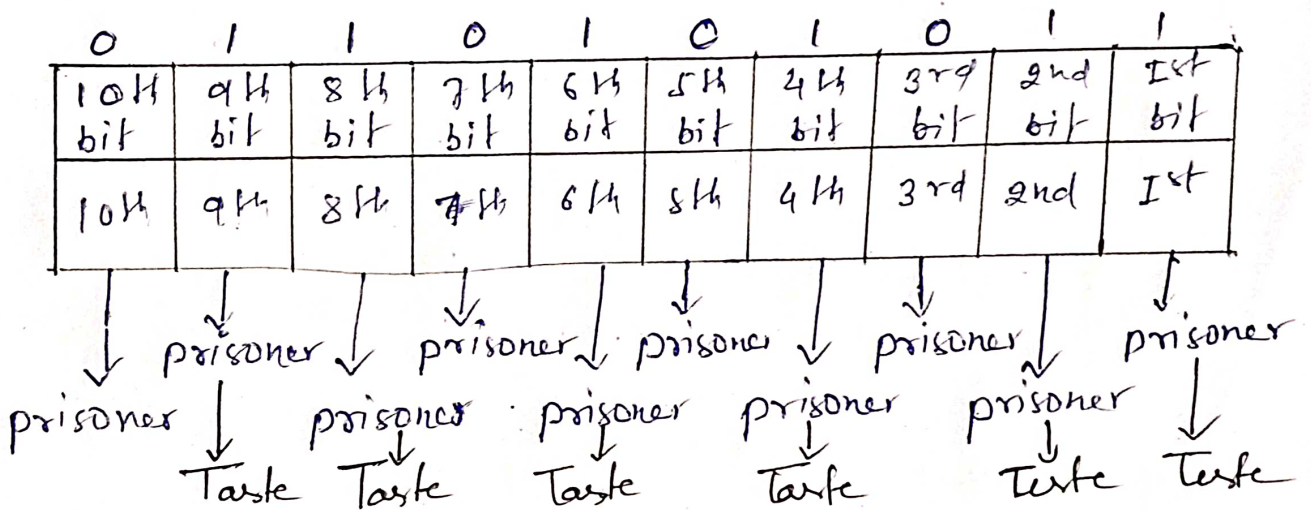 0 1 1 0 1 0 1 0 1 1
10th bit 9th bit 8th bit 7th bit 6th bit 5th bit 4th bit 3rd bit 2nd bit Ist bit
10th 9th 8th 7th 6th 5th 4th 3rd 2nd Ist
prisoner prisoner prisoner prisoner prisoner
prisoner prisoner prisoner prisoner prisoner
Taste Taste Taste Taste Teste Teste